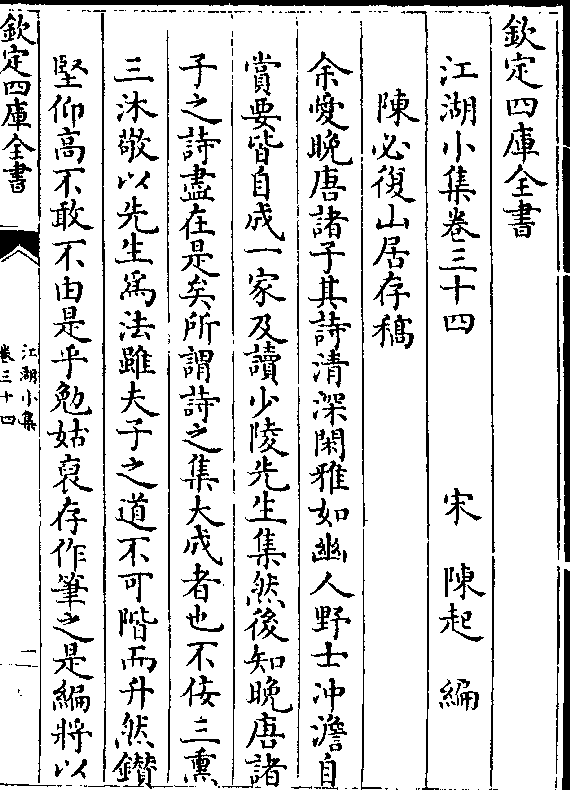 欽定四庫全書
江湖小集卷三十四
宋 陳起 編
陳必復山居存稿
余愛晚唐諸子其詩清深閑雅如幽人野士冲澹自
賞要皆自成一家及讀少陵先生集然後知晚唐諸
子之詩盡在是矣所謂詩之集大成者也不佞三熏
三沐敬以先生為法雖夫子之道不可階而升然鑚
堅仰高不敢不由是乎勉姑裒存作筆之是編將以
欽定四庫全書
江湖小集
卷三十四
一